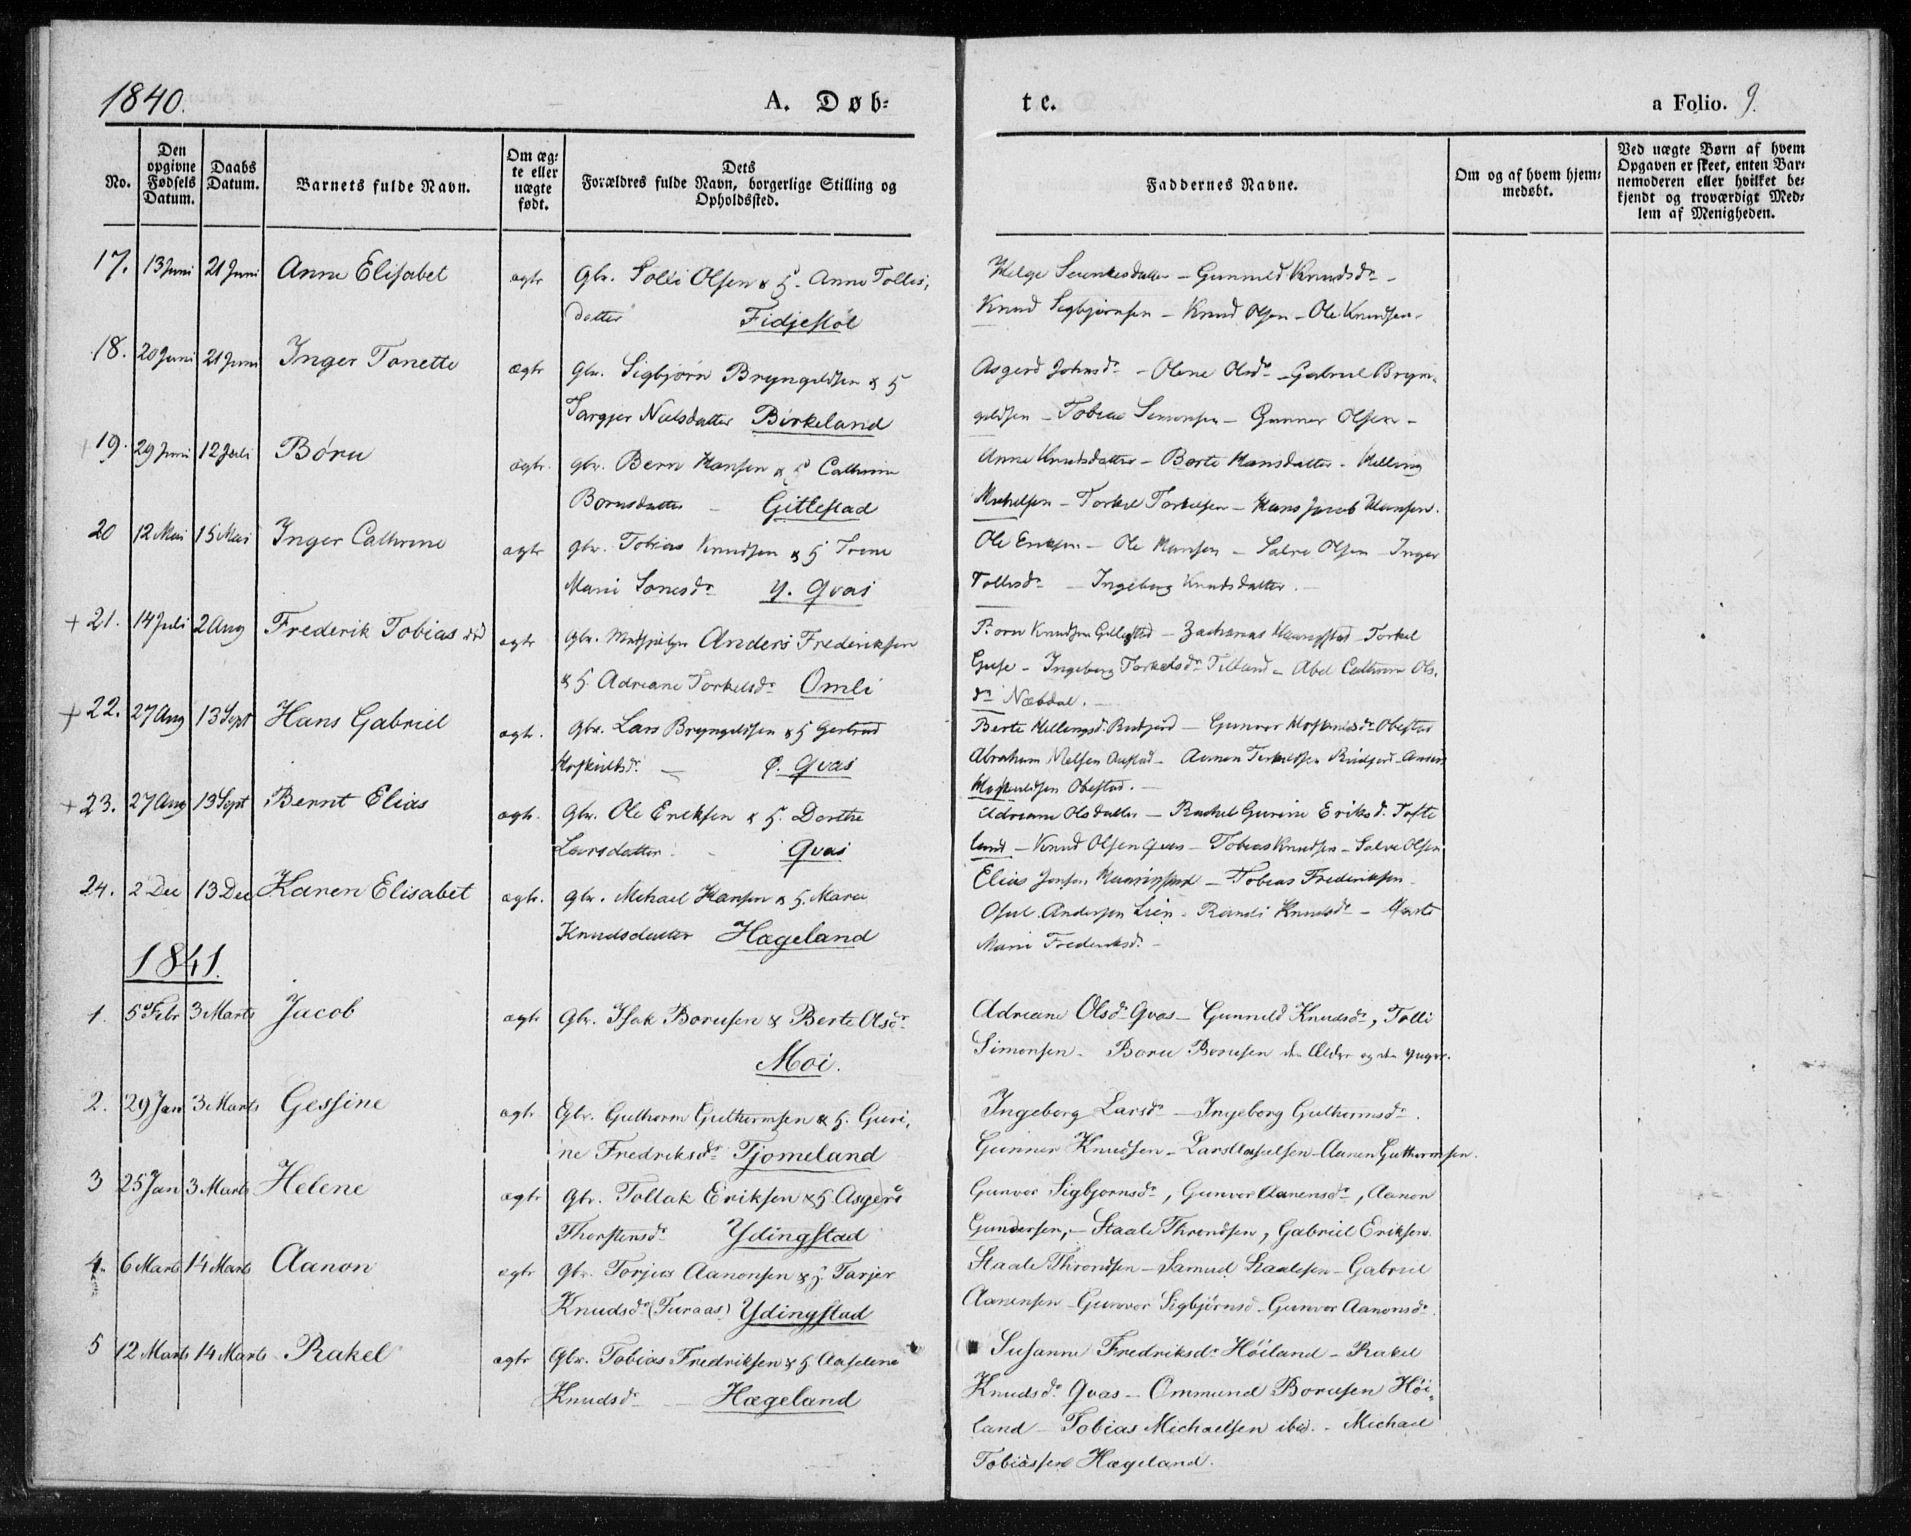 1840.
A. Døb-
te.
a Folio. 9.
No.
Den opgivne Fødsels Datum.
Daabs Datum.
Barnets fulde Navn.
Om ægte eller uægte født.
Dets Forældres fulde Navn, borgerlige Stilling og Opholdssted.
Faddernes Navne.
Om og af hvem hjemmedøbt.
Ved uægte Børn af hvem Opgaven er skeet, enten Barnemoderen eller hvilket bekjendt og troværdigt Medlem af Menigheden.
17. 13 Juni 21 Juni Anne Elisabet ægte Gbr. Tolli Olsen & H. Anne Tollis,
datter Fidjestøl
Helge datter – Gunnild Knudsdr –
Knud Sigbjørnsen – Knud Olsen – Ole Knudsen.
18. 20 Juni 21 Juni Inger Tonette ægte Gbr. Sigbjørn Bryngeldsen & H
Targjer Nielsdatter Birkeland
Asgerd Johnsdr – Olene Olsdr – Gabriel Bryn-
geldsen – Tobias Simonsen – Gunner Olsen –
+ 19. 29 Juni 12 Juli Børu ægte. Gbr. Børu Hansen & H Cathrine
Børusdatter – Gittestad
Anne Knudsdatter – Berte Hansdatter – Helling
Michelsen – Torkel Torkelsen – Hans Jacob Hansen.
20 12 Mai 15 Mai Inger Cathrine ægte Gbr. Tobias Knudsen & H Trine
Marie Sonesdr Y. Qvas
Ole Eriksen – Ole Hansen – Salve Olsen – Inger
Tollisdr – Ingeborg Knudsdatter. –
+ 21. 14 Juli 2 Aug Frederik Tobias ægte Gbr. Anders Frederiksen
& H. Adriane Torkelsdr Omli
Knudsen Gittestad – Zacharias – Torkel
– Ingeborg Torkelsdr – Abel Cathrine Ols,
dr Næbdal. –
+ 22. 27 Aug 13 Sept Hans Gabriel ægte. Gbr. Lars Bryngeldsen & H Gertrud
Hoskuldsdr. – Ø. Qvas
Berte Hellingsd. – Gunvor Hoskuldsdr Obestad
Abraham Nielsen – Aanen Terkeldsen – Anders
Hoskuldsen Obestad. –
+ 23. 27 Aug 13 Sept Bernt Elias ægte. Gbr. Ole Eriksen & H. Dorthe
Larsdatter. – Qvas
Adriane Olsdatter – Rachel Gurine Eriksd. Tofte
land – Knud Olsen Qvas – Tobias Knudsen – Salve Olsen
24. 2 Dec 13 Dec Karen Elisabet ægte. Gbr. Michael Hansen & H. Maren
Knudsdatter Hægeland
Elias Jensen – Tobias Frederiksen –
Osul. Andersen Lien – Randi Knudsdr –
Marie Frederiksdr –
1841.
1. 5 Febr 3 Marts Jacob ægte Gbr. Isak Børusen & Berte Olsdr
Moi.
Adriane Olsdr Qvas – Gunnild Knudsdr, Tolli
Simonsen – Børu Børusen den Ældre og den Yngre.
2. 29 Jan 3 Marts Gessine ægte Gbr. Guthorm Guthormsen & H. Guri,
ne Fredriksdr Tjomeland
Ingeborg Larsdr – Ingeborg Guthormsdr.
Gunner Knudsen – Lars – Aanen Guthormsen.
3 25 Jan 3 Marts Helene ægte Gbr. Tollak Eriksen & H. Asgerd
Thorstensdr Ydingstad
Gunvor Sigbjørnsdr, Gunvor Aanensdr, Aanon
Gundersen, – Staale Throndsen, Gabriel Eriksen.
4. 6 Marts 14 Marts Aanon ægte Gbr. Torjus Aanonsen & H. Tarjer
Knudsdr (Furaas) Ydingstad
Staale Throndsen – Samuel Staalesen – Gabriel
Aanensen – Gunvor Sigbjørnsd – Gunvor Aanonsdr
5 12 Marts 14 Marts Rakel ægte Gbr. Tobias Fredriksen & H Aaselene
Knudsdr – Hægeland
Susanne Fredriksdr Höiland – Rakel
Knudsdr Qvas – Ommund Børusen Höi,
land – Tobias Michaelsen ibid. – Michael
Tobiassen Hægeland.